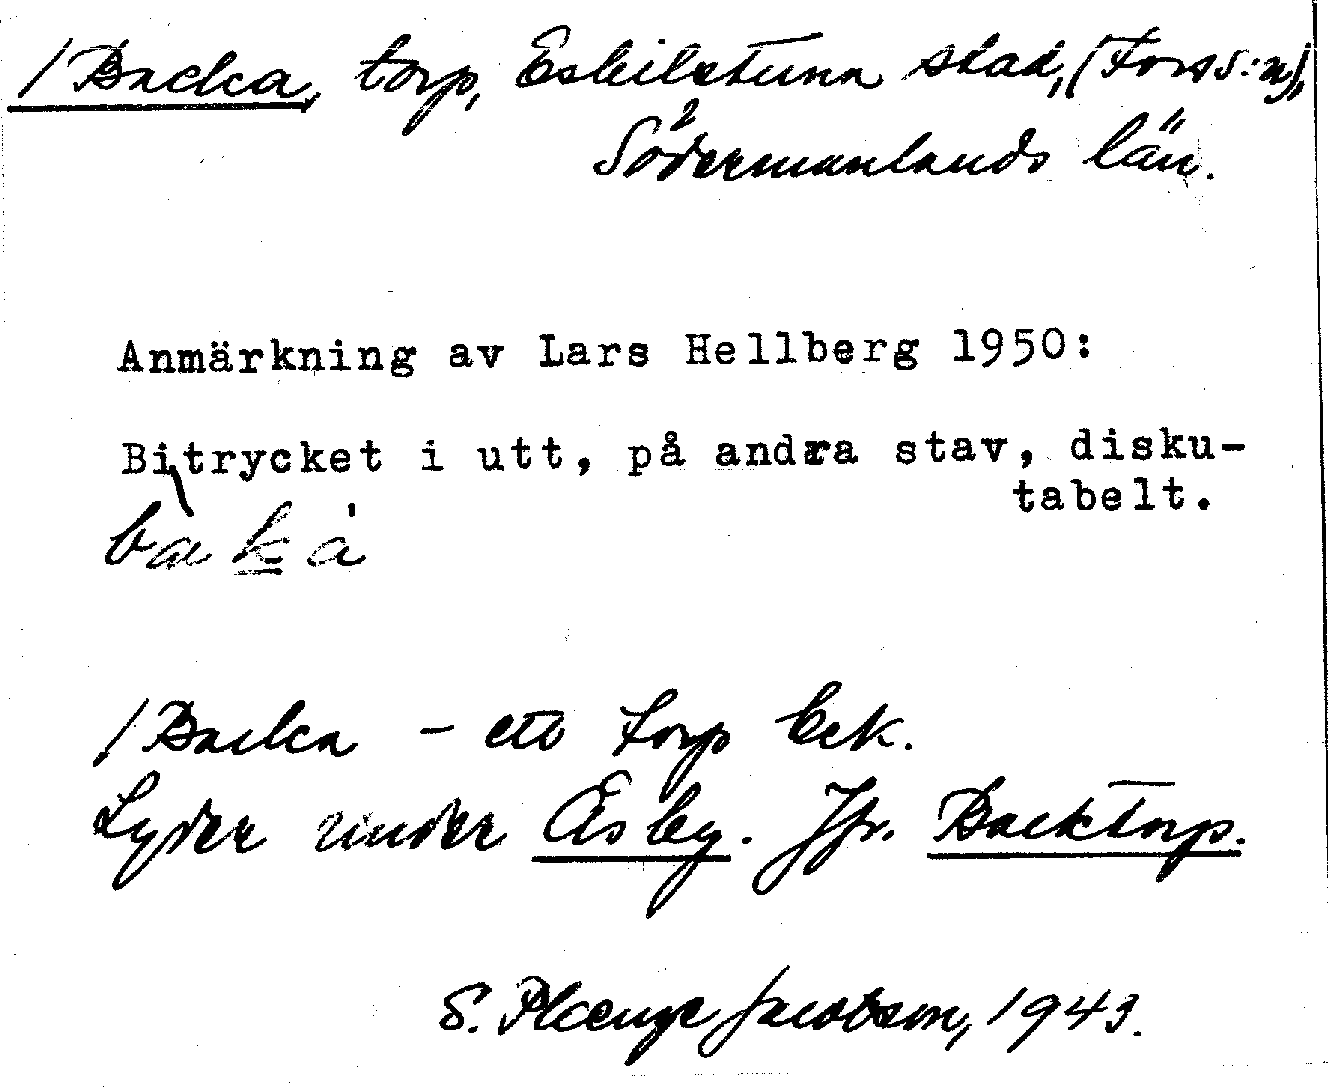 / Backa, torp, Eskilstuna stad, (Fors s:n),
Södermanlands län.
Anmärkning av Lars Hellberg 1950:
Bitrycket i utt, på andra stav, disku-
tabelt.
/ Backa – ett torp Eek.
Lyder under Åsby. Jfr. Backtorp.
S. Plænge Jacobson, 1943.